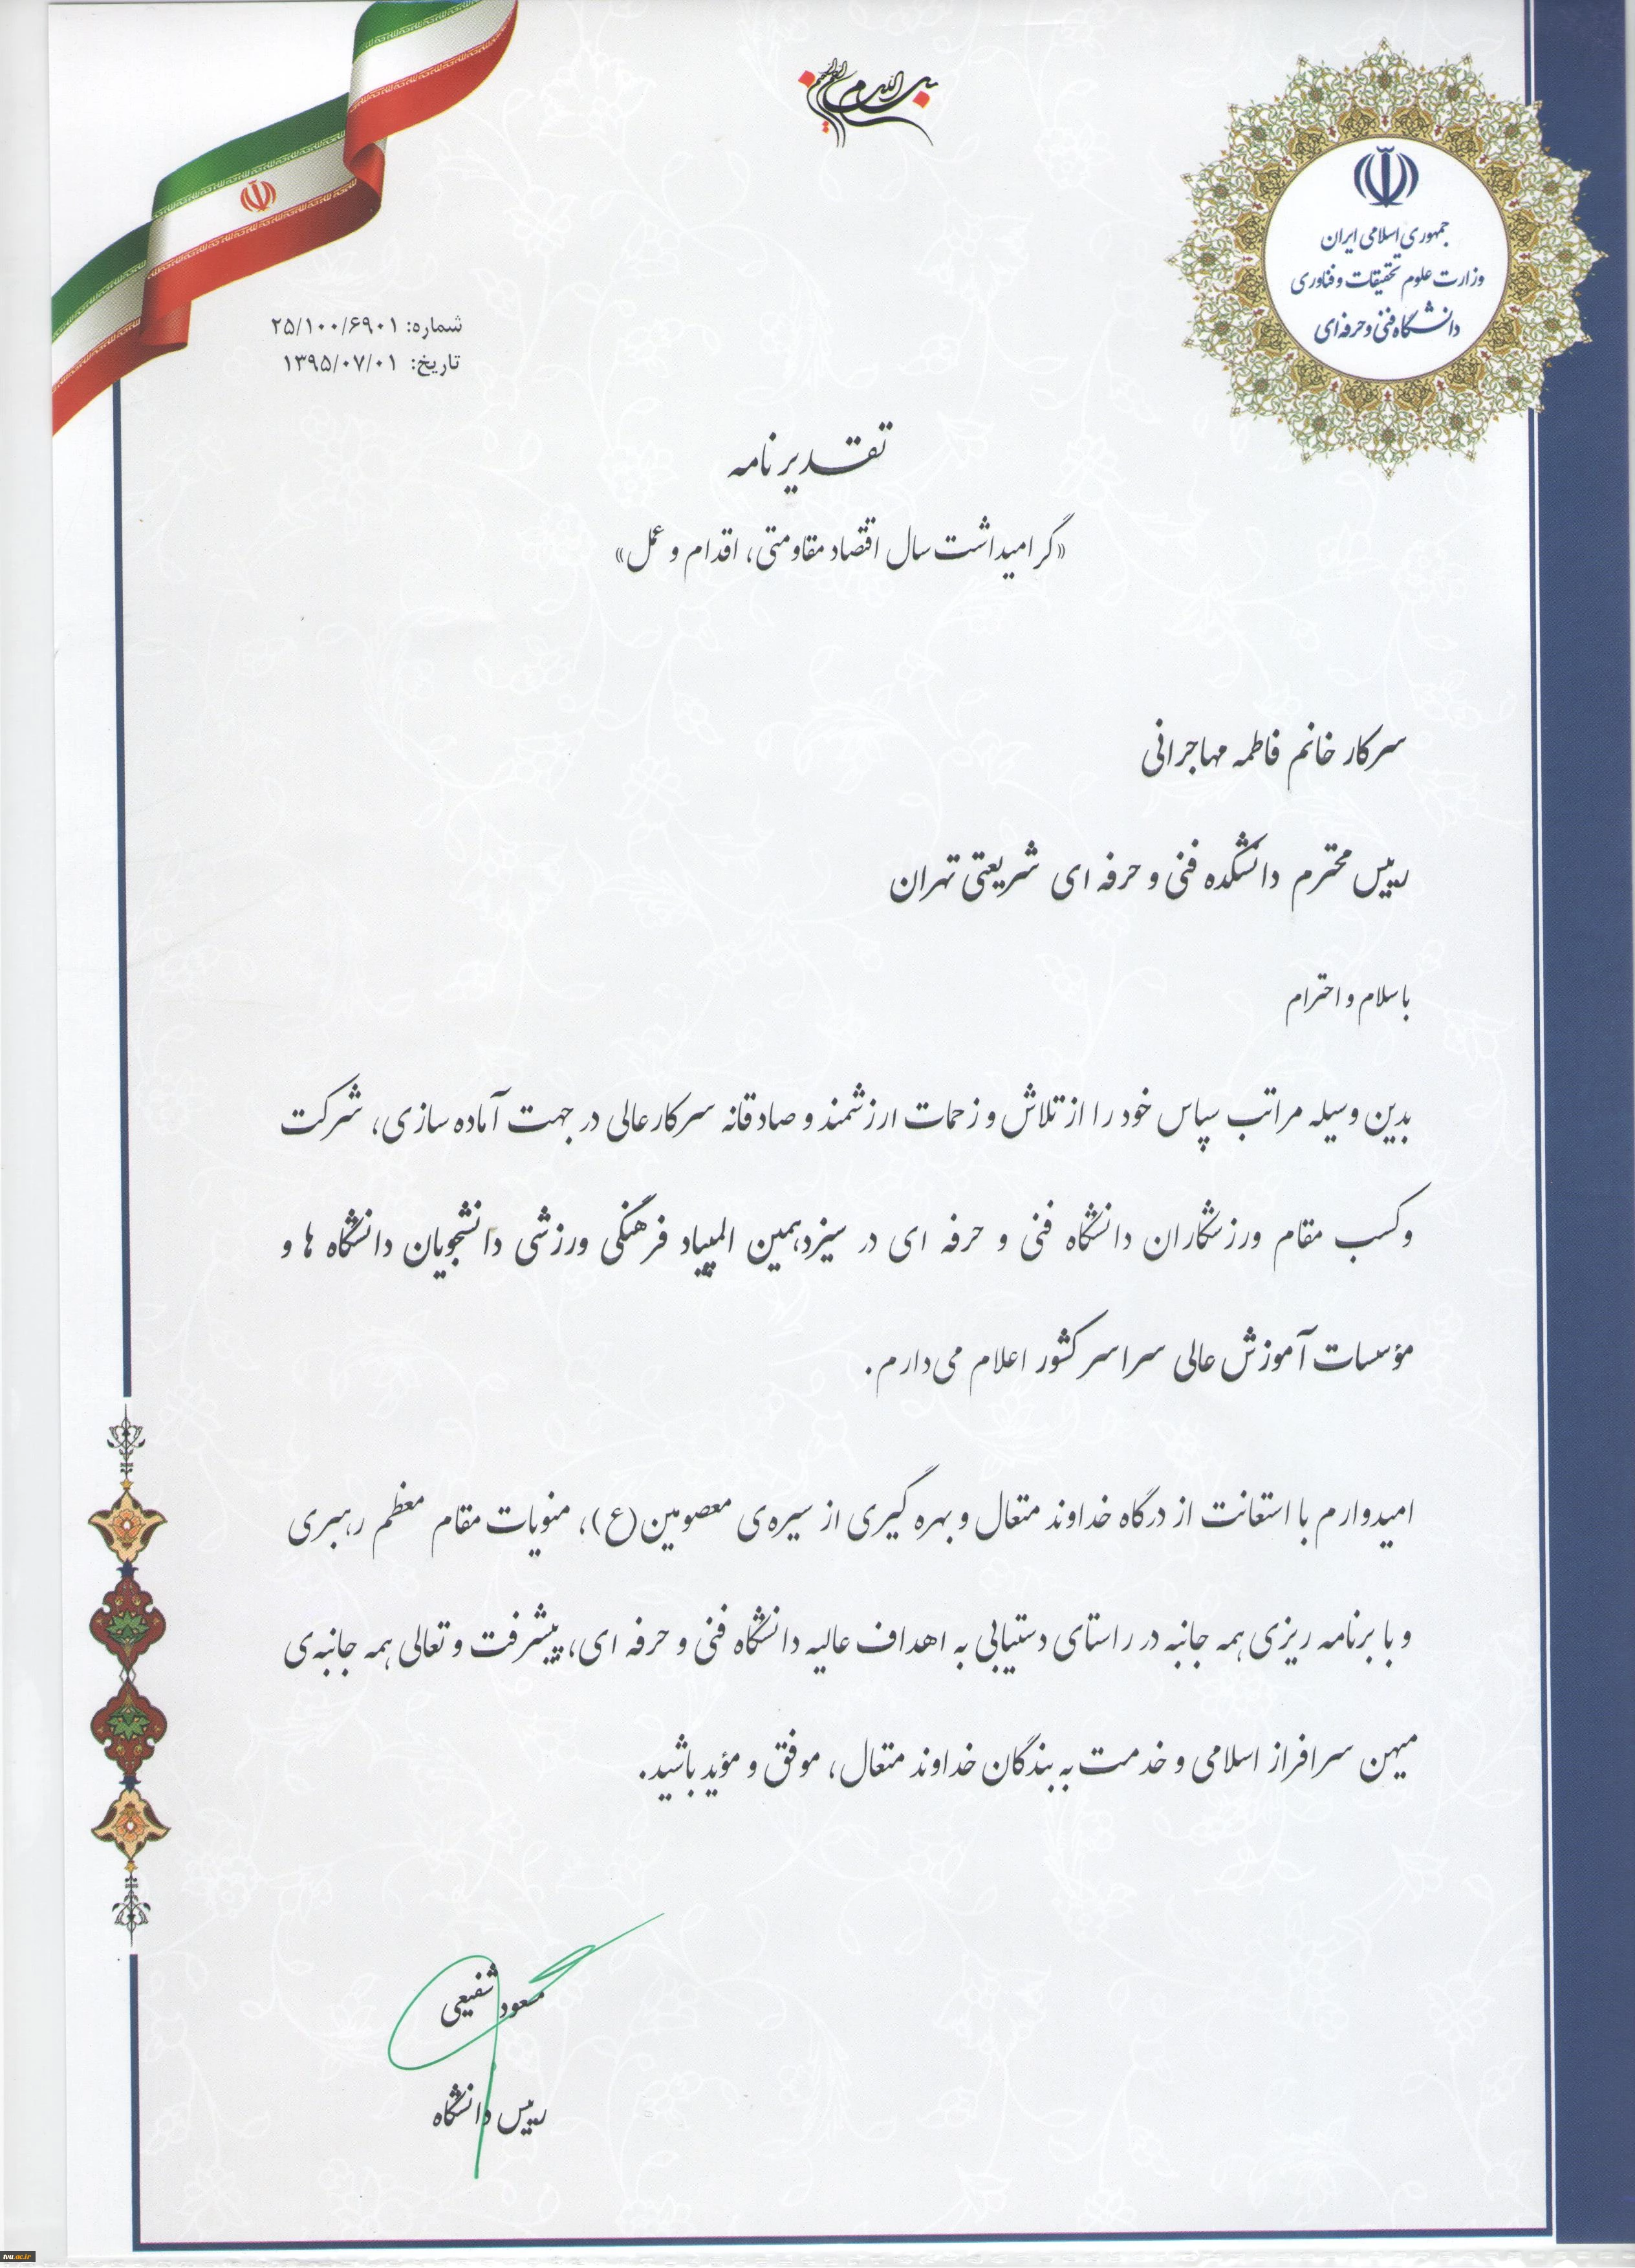 بسم الله الرحمن الرحیم
جمهوری اسلامی ایران
وزارت علوم تحقیقات و فناوری
دانشگاه فنی و حرفه‌ای
شماره: ۲۵/۱۰۰/۶۹۰۱
تاریخ: ۱۳۹۵/۰۷/۰۱
تقدیر نامه
«گرامیداشت سال اقتصاد مقاومتی، اقدام و عمل»
سرکار خانم فاطمه مهاجرانی
رییس محترم دانشکده فنی و حرفه ای شریعتی تهران
با سلام و احترام
بدین وسیله مراتب سپاس خود را از تلاش و زحمات ارزشمند و صادقانه سرکارعالی در جهت آماده سازی، شرکت
و کسب مقام ورزشکاران دانشگاه فنی و حرفه ای در سیزدهمین المپیاد فرهنگی ورزشی دانشجویان دانشگاه ها و
مؤسسات آموزش عالی سراسر کشور اعلام می‌دارم.
امیدوارم با استعانت از درگاه خداوند متعال و بهره گیری از سیره‌ی معصومین(ع)، منویات مقام معظم رهبری
و با برنامه ریزی همه جانبه در راستای دستیابی به اهداف عالیه دانشگاه فنی و حرفه ای، پیشرفت و تعالی همه جانبه‌ی
میهن سرافراز اسلامی و خدمت به بندگان خداوند متعال، موفق و مؤید باشید.
مسعود شفیعی
رییس دانشگاه
tvu.ac.ir